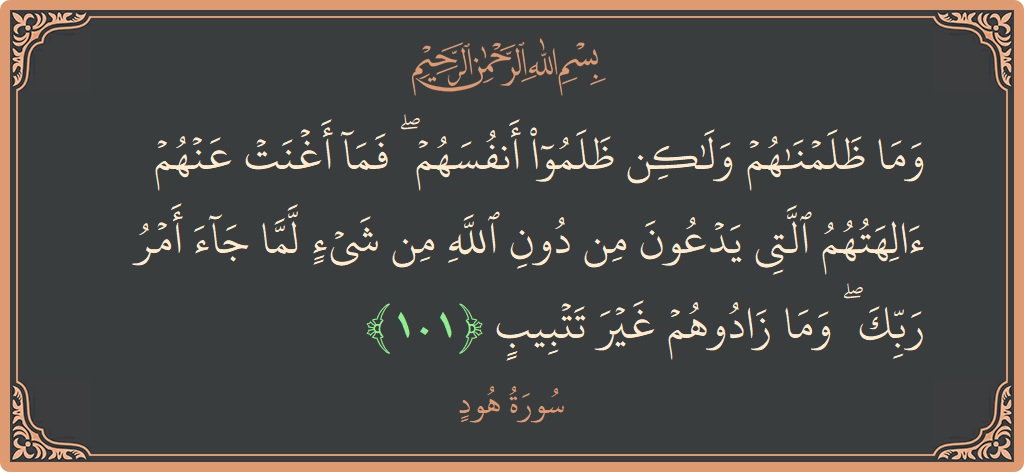 بِسْمِ اللَّهِ الرَّحْمَٰنِ الرَّحِيمِ
وَمَا ظَلَمۡنَٰهُمۡ وَلَٰكِن ظَلَمُوٓاْ أَنفُسَهُمۡۖ فَمَآ أَغۡنَتۡ عَنۡهُمۡ
ءَالِهَتُهُمُ ٱلَّتِي يَدۡعُونَ مِن دُونِ ٱللَّهِ مِن شَيۡءٖ لَّمَّا جَآءَ أَمۡرُ
رَبِّكَۖ وَمَا زَادُوهُمۡ غَيۡرَ تَتۡبِيبٖ ﴿١٠١﴾
سُورَةُ هُودٍ